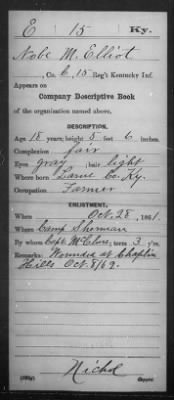 E 15 Ky.
Nabe M. Elliot
, Co. C, 15 Reg't Kentucky Inf.
Appears on
Company Descriptive Book
of the organization named above.
DESCRIPTION.
Age 18 years; height 5 feet 6 inches.
Complexion fair
Eyes gray ; hair light
Where born Larue Co. Ky.
Occupation Farmer
ENLISTMENT.
When Oct. 28 , 1861.
Where Camp Sherman
By whom Capt McClure; term 3 y'rs.
Remarks: Wounded at Chaplin
Hills Oct. 8/62.
Nichol
Copyist.